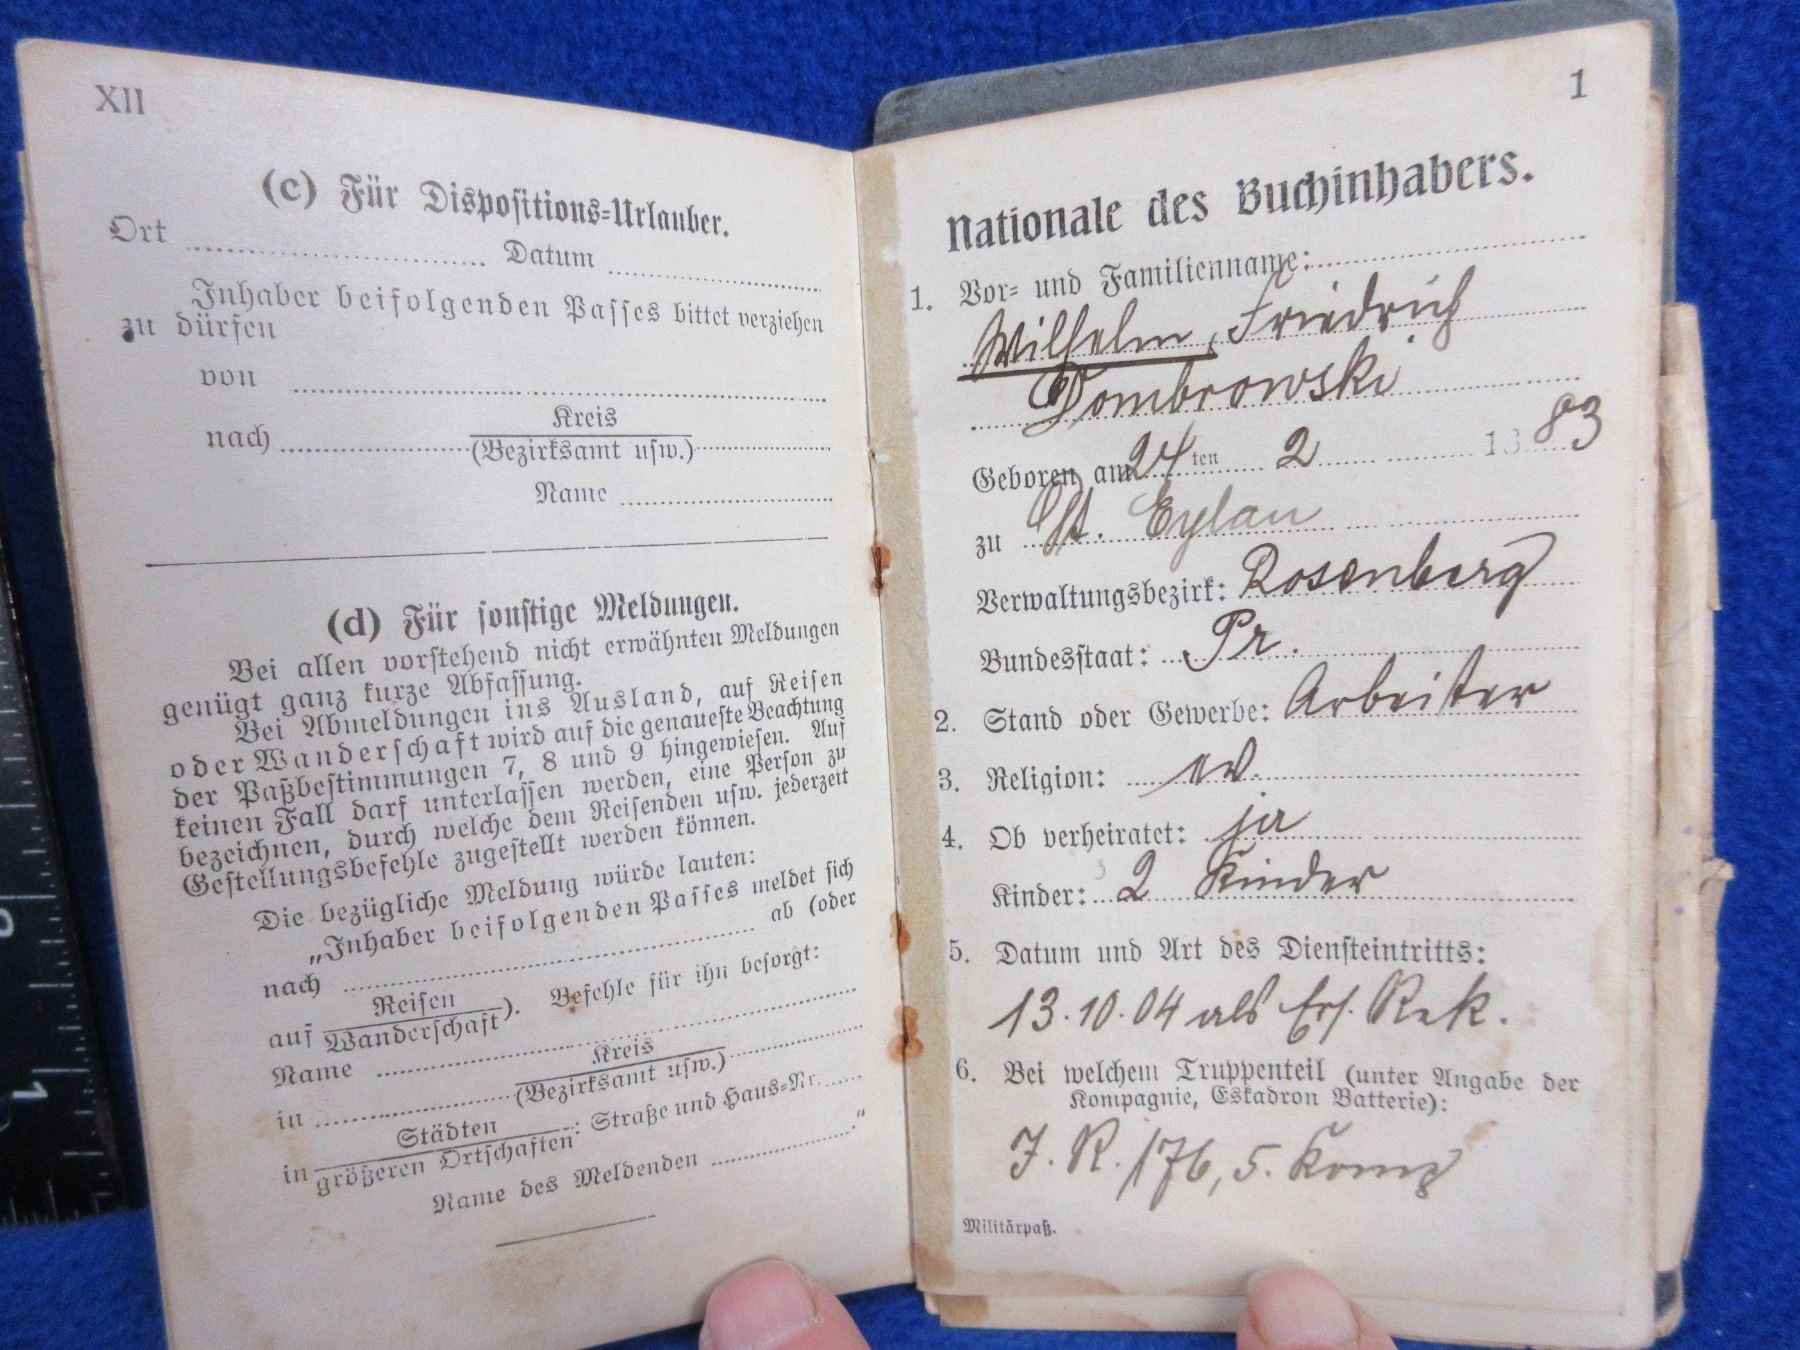 XII
(c) Für Dispositions-Urlauber.
Ort Datum
Inhaber beifolgenden Passes bittet verziehen
zu dürfen
von
nach Kreis
(Bezirksamt usw.)
Name
(d) Für sonstige Meldungen.
Bei allen vorstehend nicht erwähnten Meldungen
genügt ganz kurze Abfassung.
Bei Abmeldungen ins Ausland, auf Reisen
oder Wanderschaft wird auf die genaueste Beachtung
der Paßbestimmungen 7, 8 und 9 hingewiesen. Auf
keinen Fall darf unterlassen werden, eine Person zu
bezeichnen, durch welche dem Reisenden usw. jederzeit
Gestellungsbefehle zugestellt werden können.
Die bezügliche Meldung würde lauten:
„Inhaber beifolgenden Passes meldet sich
nach ab (oder
auf Reisen
Wanderschaft). Befehle für ihn besorgt:
Name
in Kreis
(Bezirksamt usw.)
in Städten
größeren Ortschaften: Straße und Haus-Nr.
Name des Meldenden "
1
Nationale des Buchinhabers.
1. Vor- und Familienname:
Wilhelm, Friedrich
Dombrowski
Geboren am 24ten 2 1883
zu Dt. Eylau
Verwaltungsbezirk: Rosenberg
Bundesstaat: Pr.
2. Stand oder Gewerbe: Arbeiter
3. Religion: ev.
4. Ob verheiratet: ja
Kinder: 2 Kinder
5. Datum und Art des Diensteintritts:
13.10.04 als Ers. Rek.
6. Bei welchem Truppenteil (unter Angabe der
Kompagnie, Eskadron Batterie):
J. R. 176, 5. Komp
Militärpaß.
1